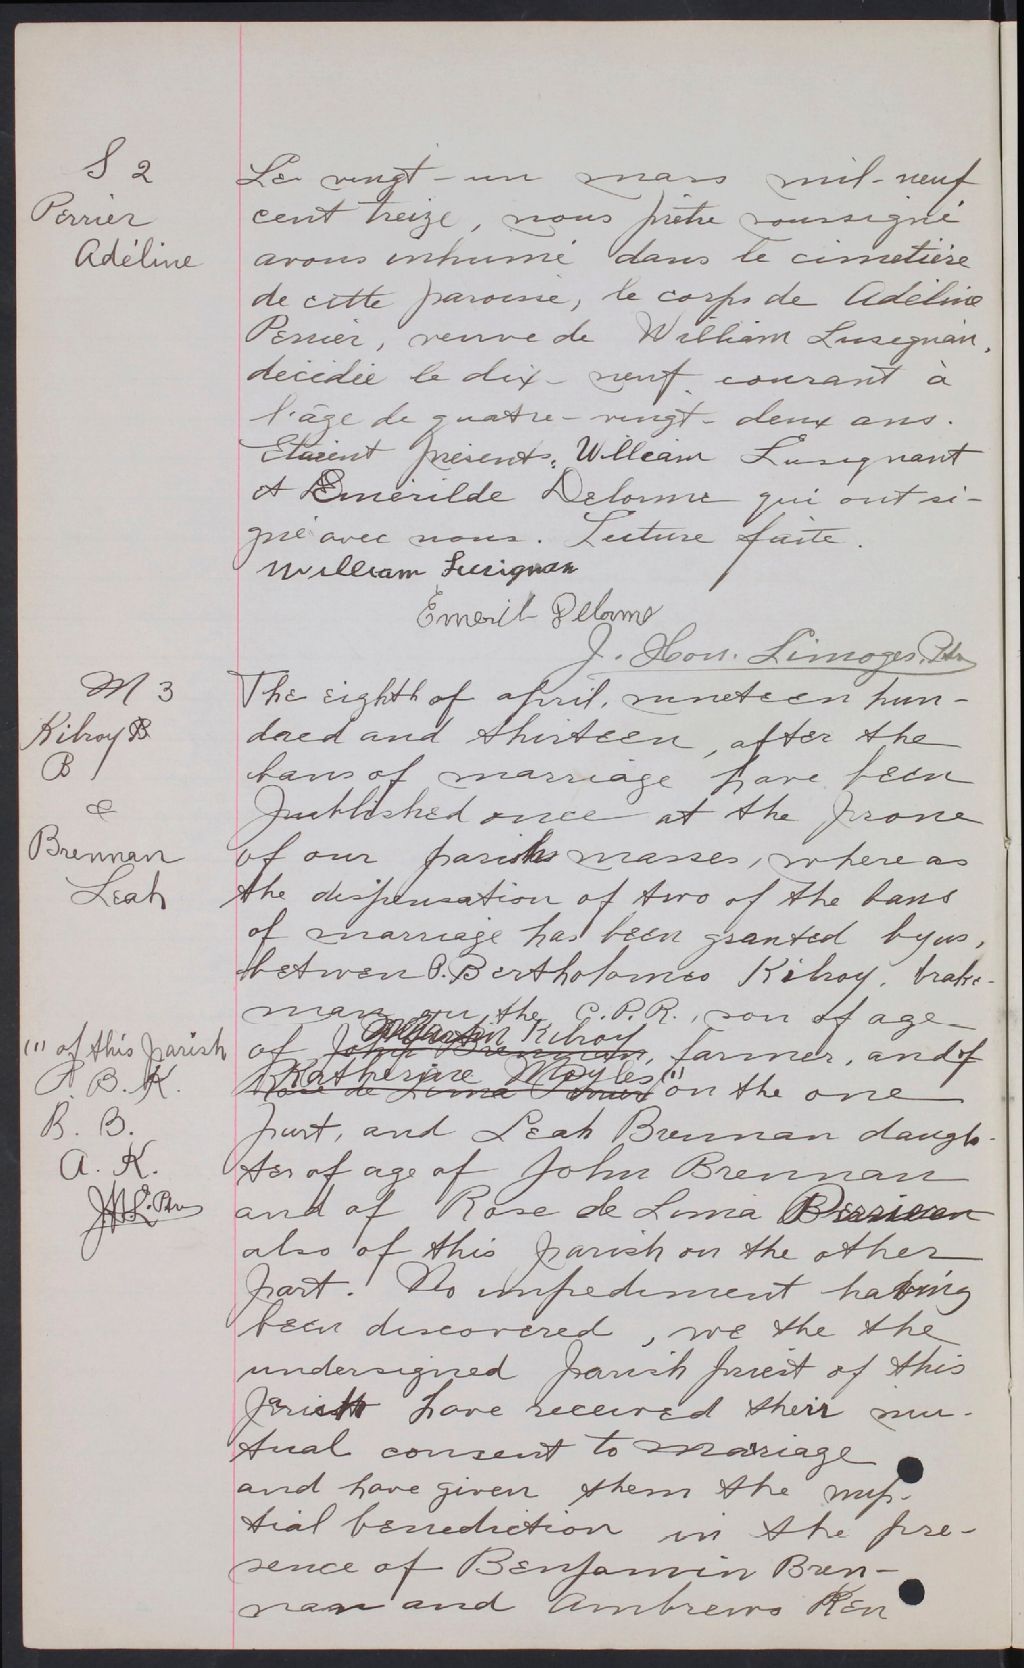 S 2
Perrier
Adéline
Le vingt-un mars mil-neuf
cent treize, nous prêtre soussigné
avons inhumé dans le cimetière
de cette paroisse, le corps de Adéline
Perrier, veuve de William Lusegnan,
décédée le dix-neuf courant à
l'âge de quatre-vingt-deux ans.
Etaient présents, William Lusignant
et Emérilde Delorme qui ont si-
gné avec nous. Lecture faite.
William Lusignan
Emeril Delorme
J. Hon. Limoges, Ptr
M 3
Kilroy B
B
&
Brennan
Leah
The eighth of april, nineteen hun-
dred and thirteen, after the
bans of marriage have been
published once at the prone
of our parish masses, where as
the dispensation of two of the bans
of marriage has been granted by us,
between P. Bertholomeo Kilroy, brake-
man on the C.P.R., son of age
of John Brennan, Kilroy farmer, and of
Rose de Lima Katherine Moyles (1) on the one
part, and Leah Brennan daugh-
ter of age of John Brennan
and of Rose de Lima
also of this parish on the other
part. No impediment having
been discovered, we the the
undersigned parish priest of this
parish have received their mu-
tual consent to marriage
and have given them the nup-
tial benediction in the pre-
sence of Benjamin Bren-
nan and Ambrews Ken
(1) of this parish
P. B. K.
B. B.
A. K.
JHL. Ptr